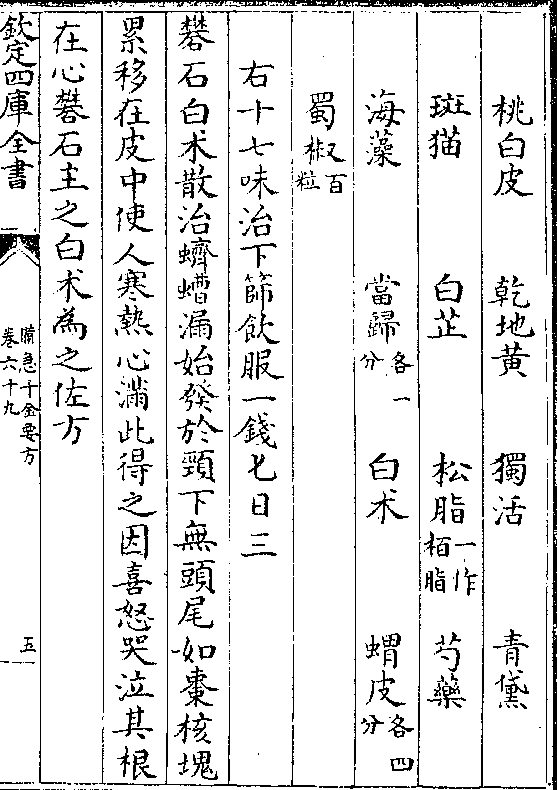 桃白皮 乾地黄 獨活 青黛
斑猫 白芷 松脂一作栢脂 芍藥
海藻 當歸各一分 白术 蝟皮各四分
蜀椒百粒
右十七味治下篩飲服一錢匕日三
礬石白术散治蠐螬漏始發於頸下無頭尾如棗核塊
累移在皮中使人寒熱心滿此得之因喜怒哭泣其根
在心礬石主之白术為之佐方
欽定四庫全書
備急千金要方
卷六十九
五